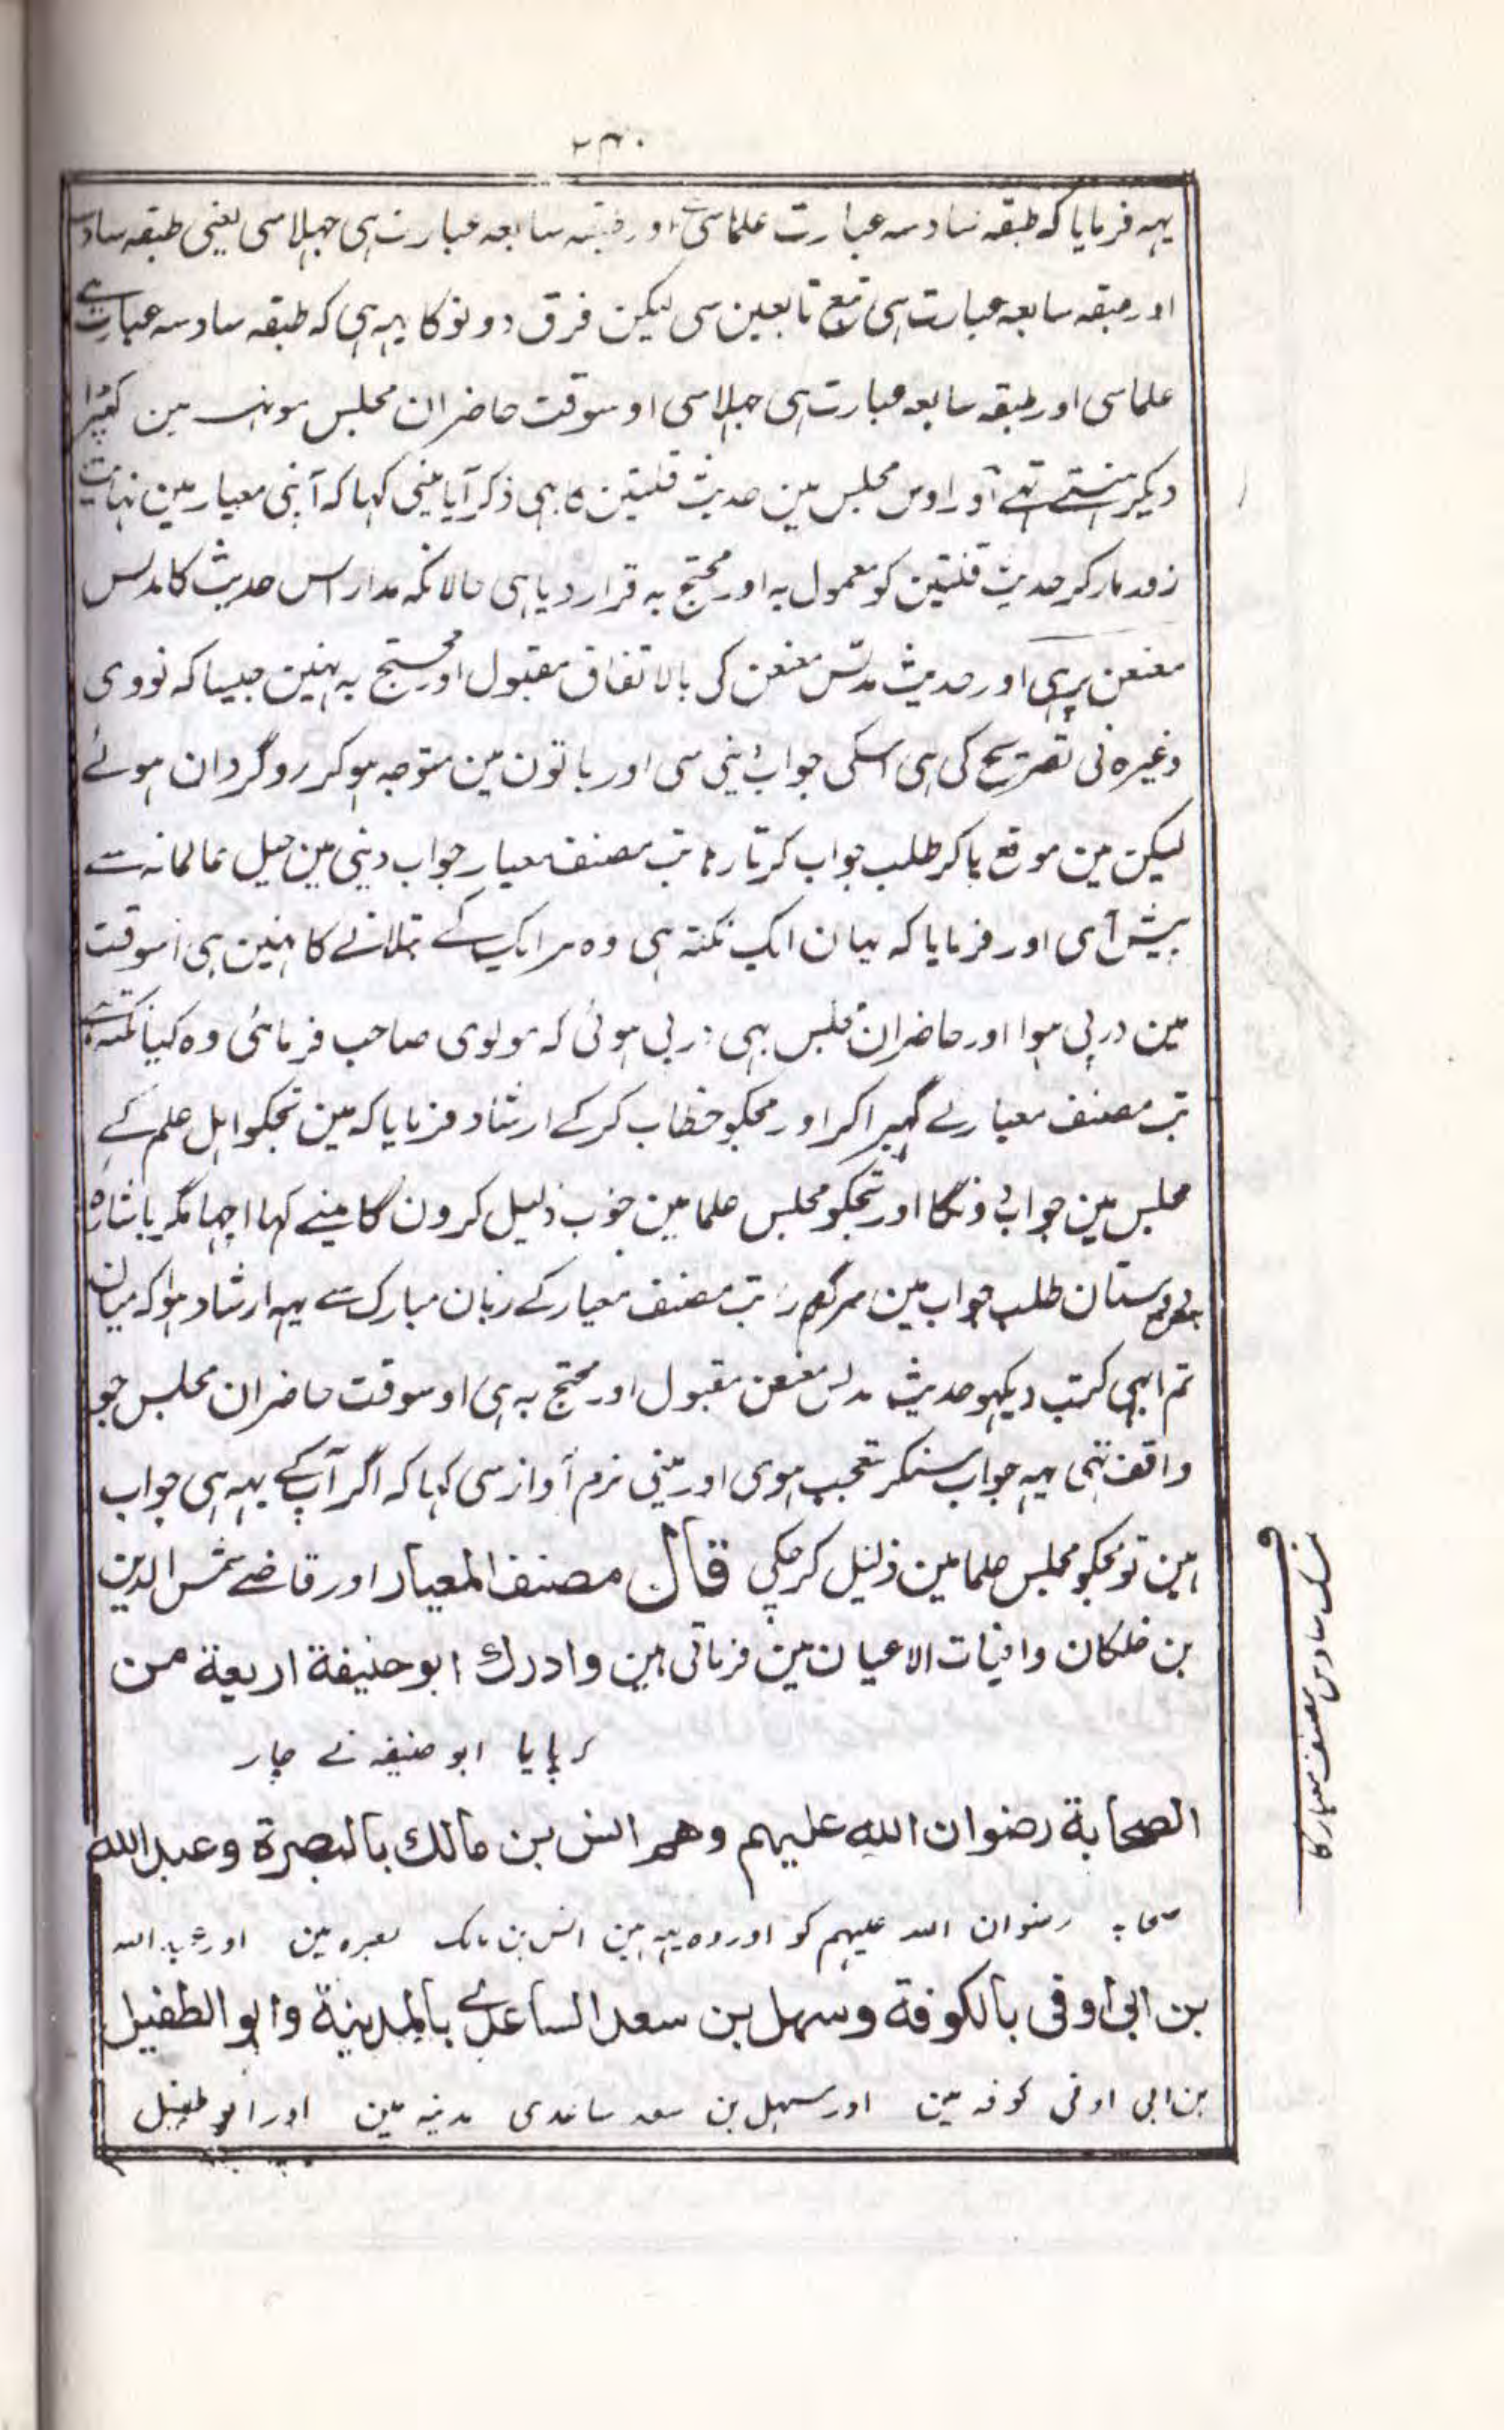 ۲۳۰
یہہ فرمایا کہ طبقہ سادسہ عبارت علماسی اور طبقہ سابعہ عبارت ہی جہلاسی یعنی طبقہ سادسہ
اور طبقہ سابعہ عبارت ہی تبع تابعین سی لیکن فرق دونو کا یہہ ہی کہ طبقہ سادسہ عبارت ہے
علماسی اور طبقہ سابعہ عبارت ہی جہلاسی اوسوقت حاضران مجلس مونہہ مین کپڑا
دیکر ہنستے تہے اور اوس مجلس مین حدیث قلتین کا بہی ذکر آیا مینی کہا کہ آپنی معیار مین نہایت
زور مار کر حدیث قلتین کو معمول بہ اور محتج بہ قرار دیا ہی حالانکہ مدار اس حدیث کا مدلس
معنعن پر ہی اور حدیث مدلس معنعن کی بالاتفاق مقبول اور محتج بہ نہین جیسا کہ نووی
وغیرہ نی تصریح کی ہی اسکی جواب دینی سی اور باتون مین متوجہ ہوکر روگردان ہوئے
لیکن مین موقع پاکر طلب جواب کرتا رہا تب مصنف معیار جواب دینی مین حیل عالمانہ سے
پیش آی اور فرمایا کہ یہان ایک نکتہ ہی وہ ہر ایک کے بتلانے کا نہین ہی اسوقت
مین درپی ہوا اور حاضران مجلس بہی درپی ہوئی کہ مولوی صاحب فرمائی وہ کیا نکتہ ہے
تب مصنف معیار نے گہبراکر اور مجکو خطاب کرکے ارشاد فرمایا کہ مین تجکو اہل علم کے
مجلس مین جواب دونگا اور تجکو مجلس علما مین خوب ذلیل کرون گا مینے کہا اچہا مگر باشارہ
بعض دوستان طلب جواب مین سرگرم رہا تب مصنف معیار کے زبان مبارک سے یہہ ارشاد ہوا کہ میان
تم ابہی کتب دیکہو حدیث مدلس معنعن مقبول اور محتج بہ ہی اوسوقت حاضران مجلس جو
واقف تہی یہہ جواب سنکر متعجب ہوی اور مینی نرم آواز سی کہا کہ اگر آپ کے یہہ ہی جواب
ہین تو مجکو مجلس علما مین ذلیل کرچکی قال مصنف المعیار اور قاضے شمس الدین
بن خلکان وافیات الاعیان مین فرماتی ہین وادرك ابو حنيفة اربعة من
کہ پایا ابو حنیفہ نے چار
الصحابة رضوان الله عليهم وهم انس بن مالك بالبصرة وعبد الله
صحابہ رضوان اللہ علیہم کو اور وہ یہہ ہین انس بن مالک بصرہ مین اور عبد اللہ
بن ابى اوفى بالكوفة وسهل بن سعد الساعدے بالمدينة وابو الطفيل
بن ابی اوفی کوفہ مین اور سہل بن سعد ساعدی مدینہ مین اور ابو طفیل
سادس مصنف معیار کا